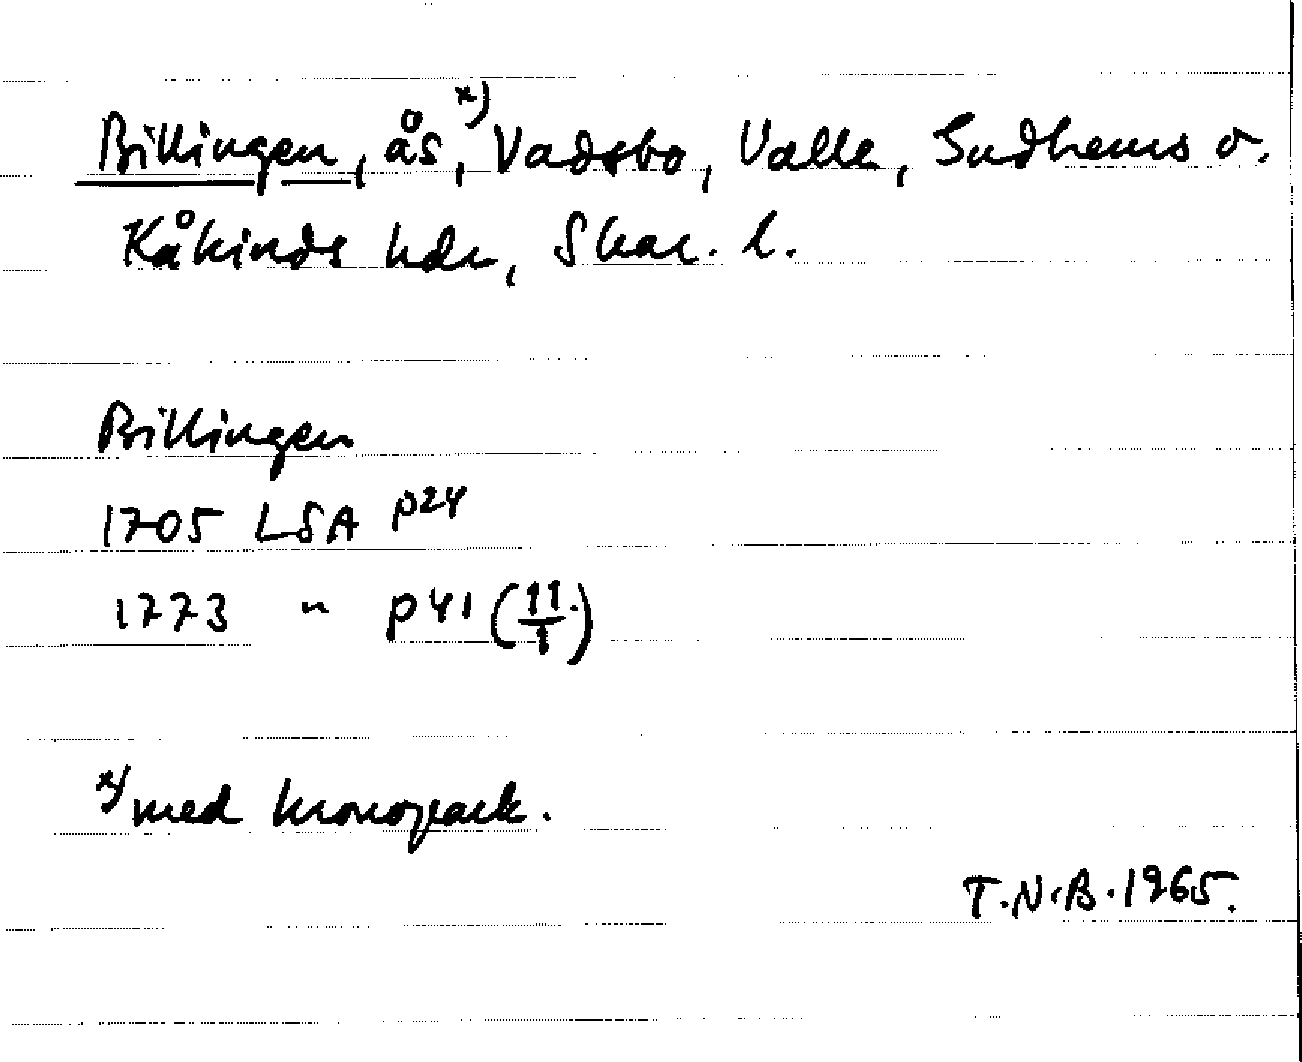 Billingen, ås,x) Vadsbo, Valle, Gudhems o.
Kåkinds hdr, Skar. l.
Billingen
1705 LSA P24
1773 " P41 (11/1)
x) med kronopark.
T.N.B. 1965.